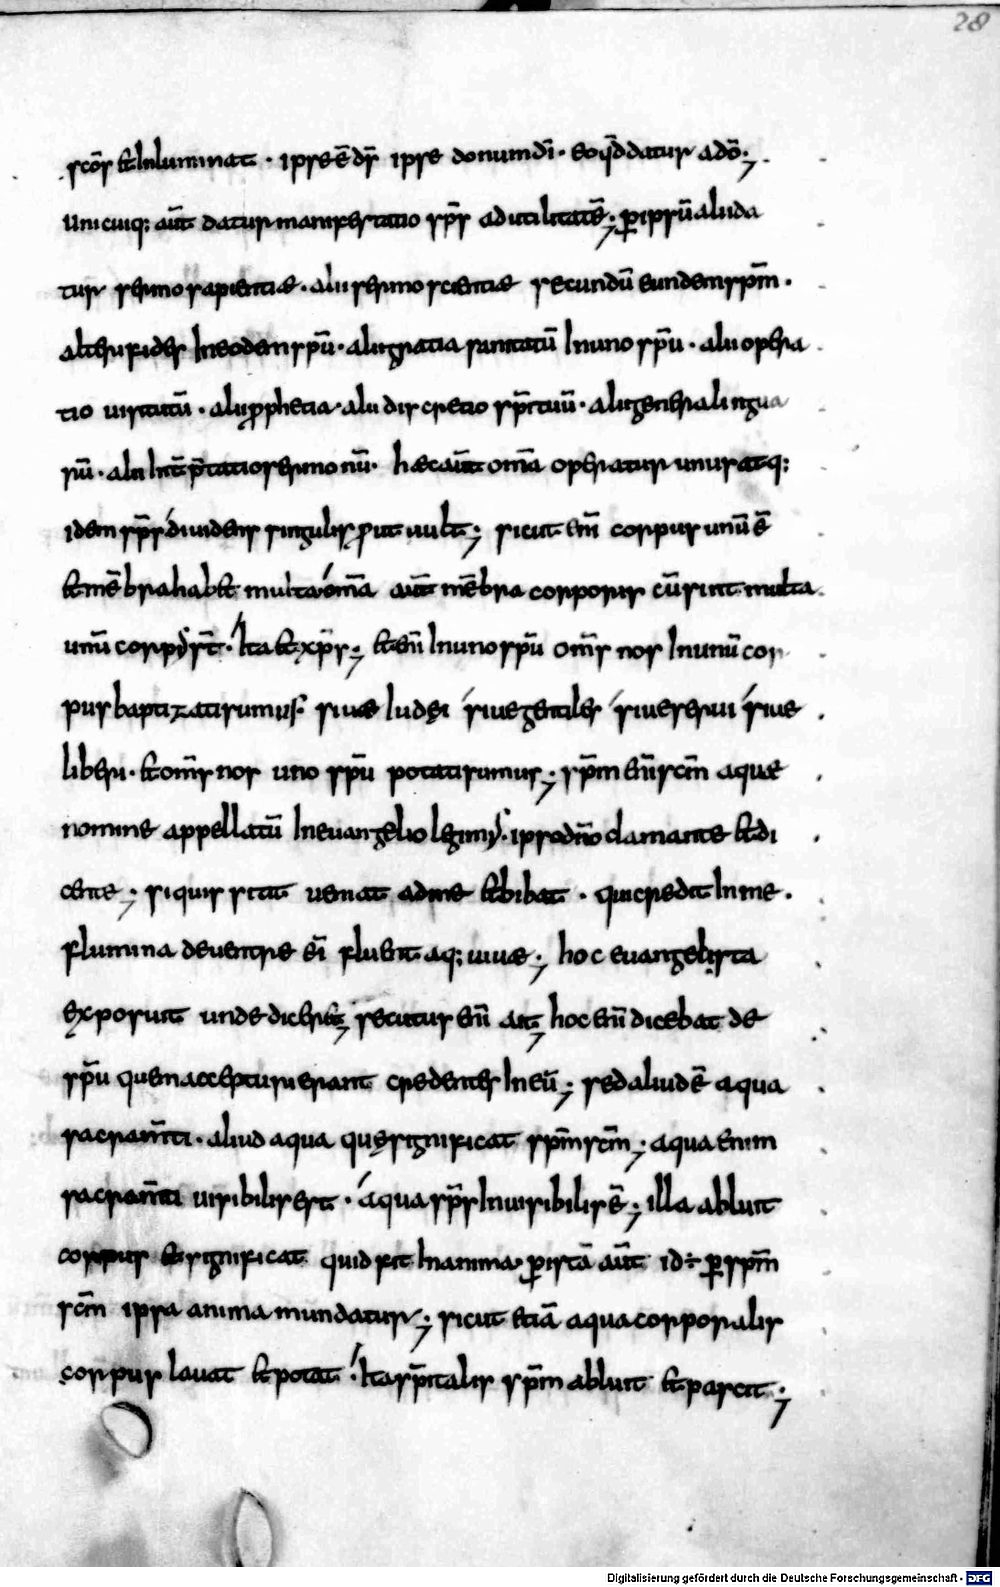 28
scōs &inluminat · ipse ē ds̄ ipse donum dī · eo qđ datur a dō;
Unicuiq; aūt datur manifestatio sp̄s ad utilitatē; ꝑ ipsū alii da
tur sermo sapientiæ · alii sermo scientiæ secundū eundem sp̄m ·
alteri fides in eodem sp̄u · alii gratia sanitatū in uno sp̄u · alii opera
tio uirtutū · alii ꝓphetia · alii discretio sp̄ituū · alii genera lingua
rū · alii int̄p̄tatio sermonū · hæc aūt om̄a operatur unus atq;
idem sp̄s diuidens singulis ꝓut uult; sicut enī corpus unū ē
& mēbra hab& multa om̄a aūt mēbra corporis cū sint multa
unū corpꝰ st̄ · Ita & xp̄s; & enī in uno sp̄u om̄s nos in unū cor
pus baptizati sumus · siue iudęi siue gentiles siue serui siue
liberi · & om̄s nos uno sp̄u potati sumus; sp̄m enī scm̄ aquæ
nomine appellatū in euangelio legimꝰ · ipso dn̄o clamante & di
cente; siquis sitit ueniat ad me & bibat · qui credit in me ·
flumina de uentre eī fluent aq; uiuæ; hoc euangelista
exposuit unde dicer&; secutus enī ait; hoc enī dicebat de
sp̄u quem accepturi erant credentes in eū; sed aliud ē aqua
sacram̄ti · aliud aqua quę significat sp̄m scm̄; aqua enim
sacram̄ti uisibilis est · aqua sp̄s inuisibilis ē; illa abluit
corpus & significat quid fit in anima ꝑ istā aūt id÷ ꝑ sp̄m
scm̄ ipsa anima mundatur; sicut etiā aqua corporalis
corpus lauat & potat · Ita sp̄italis sp̄m abluit & pascit;
Digitalisierung gefördert durch die Deutsche Forschungsgemeinschaft - DFG